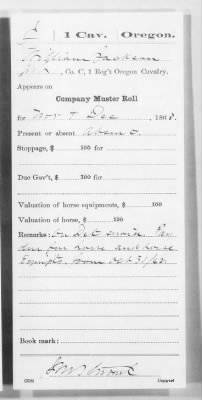 1 Cav. Oregon.
William Jackson
Co. C, 1 Reg't Oregon Cavalry.
Appears on
Company Muster Roll
for Nov & Dec, 186
Present or absent Absent
Stoppage, $ 100 for
Due Gov't, $ 100 for
Valuation of horse equipments, $ 100
Valuation of horse, $ 100
Remarks: On Det service. Pay
due for horse and horse
Equipts. from Oct 31/62
Book mark:
Copyist.